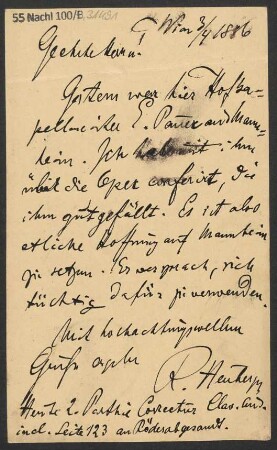 55 Nachl 100/B,
Wien 3/4 1886
Geehrter Herr!
Gestern war hier Hofka-
pellmeister E. Pauer aus Mann-
heim. Ich habe mit ihm
über die Oper conferirt, die
ihm gut gefällt. Es ist also
etliche Hoffnung auf Mannheim
zu setzen. Er versprach, sich
tüchtig dafür zu verwenden.
Mit hochachtungsvollem
Gruße
R. Heuberger
Heute 2. Parthie Correctur Clav.
incl. Seite 123 an Röder abgesandt.